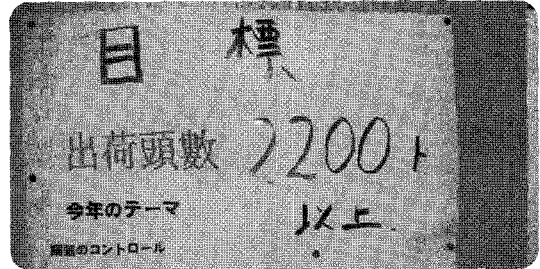 目標
出荷頭數 2200ト
以上
今年のテーマ
のコントロール